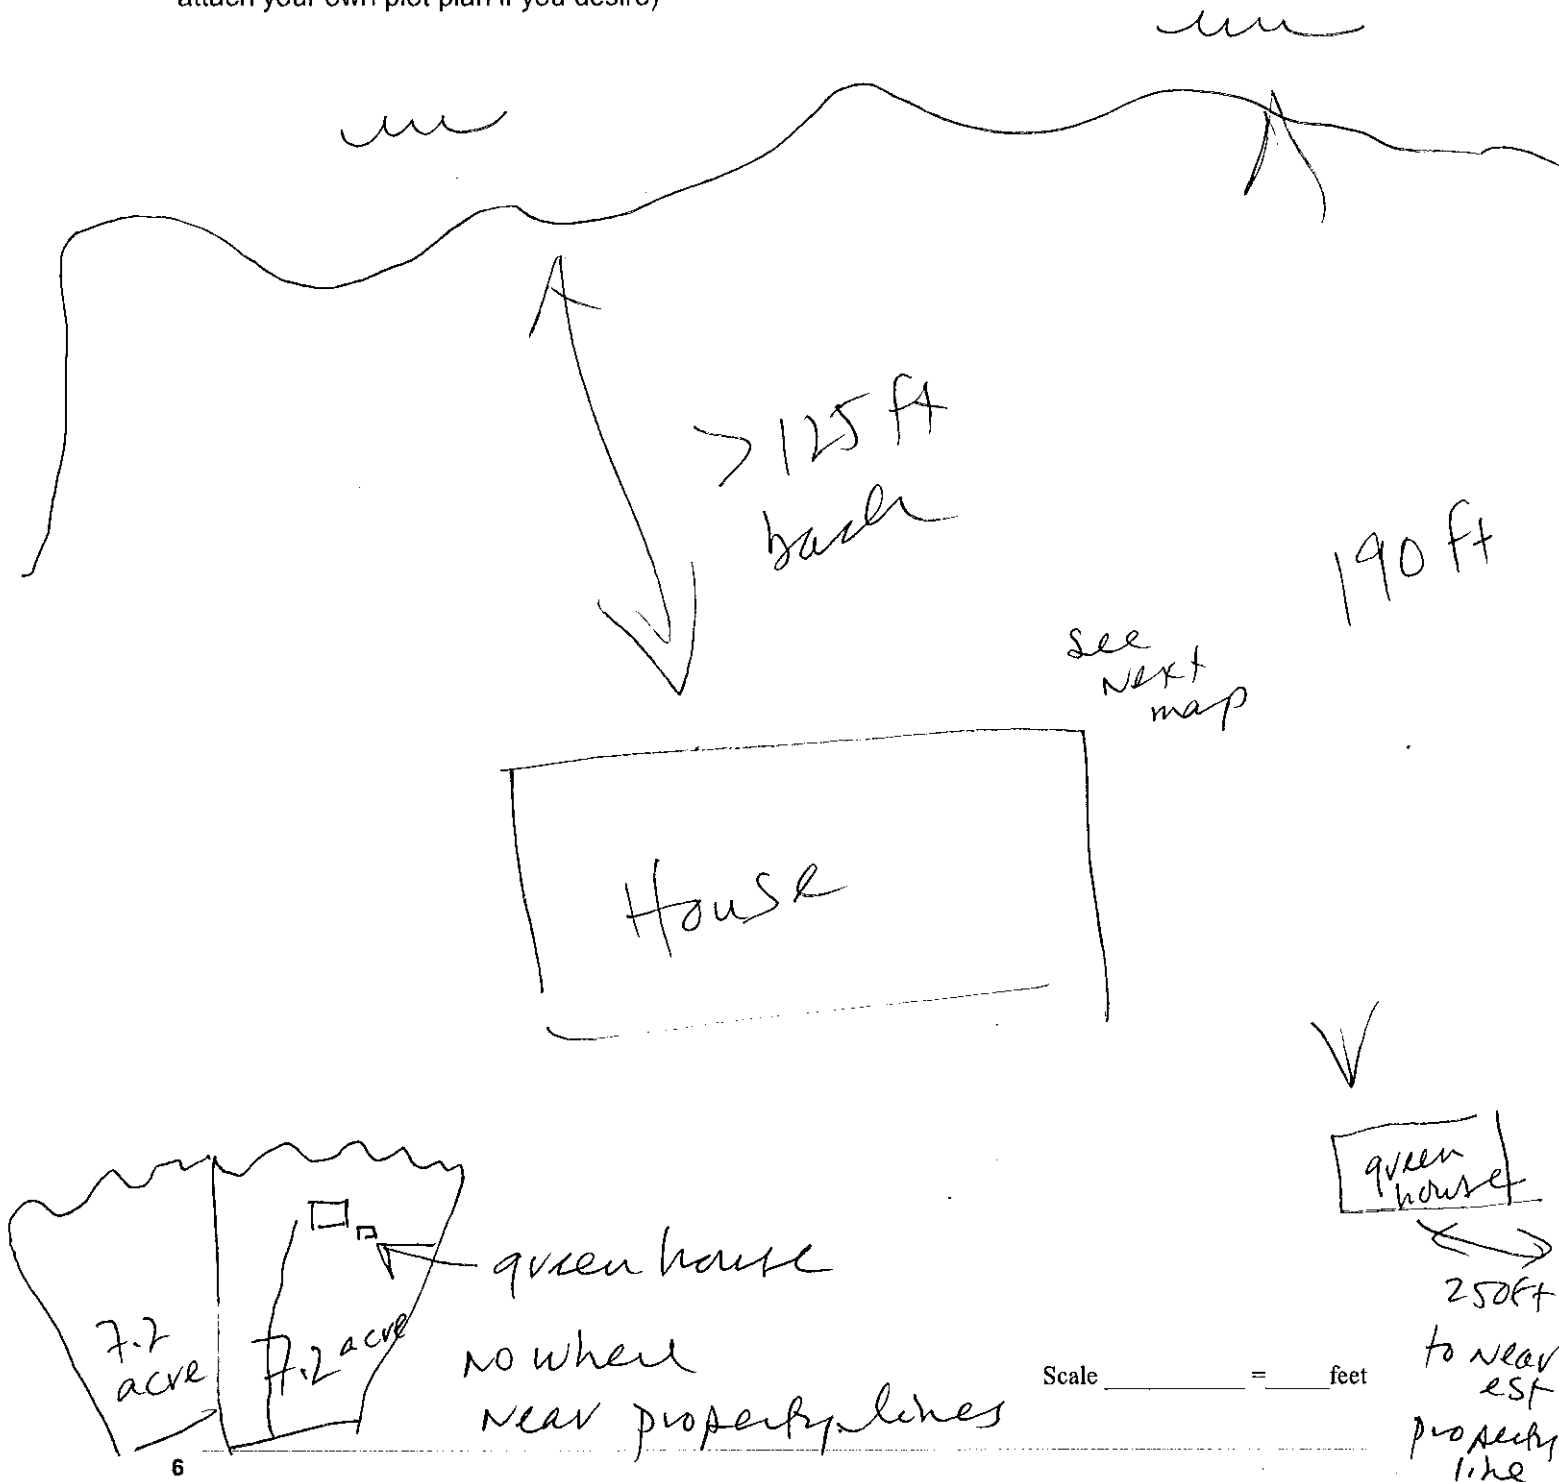 attach your own plot plan if you desire)
>125 ft
back
190 ft
see
Next
map
House
green
house
250ft
to near
est
property
line
green house
7.2
acre
7.2 acre
No where
Near property lines
Scale ______ = ____ feet
6